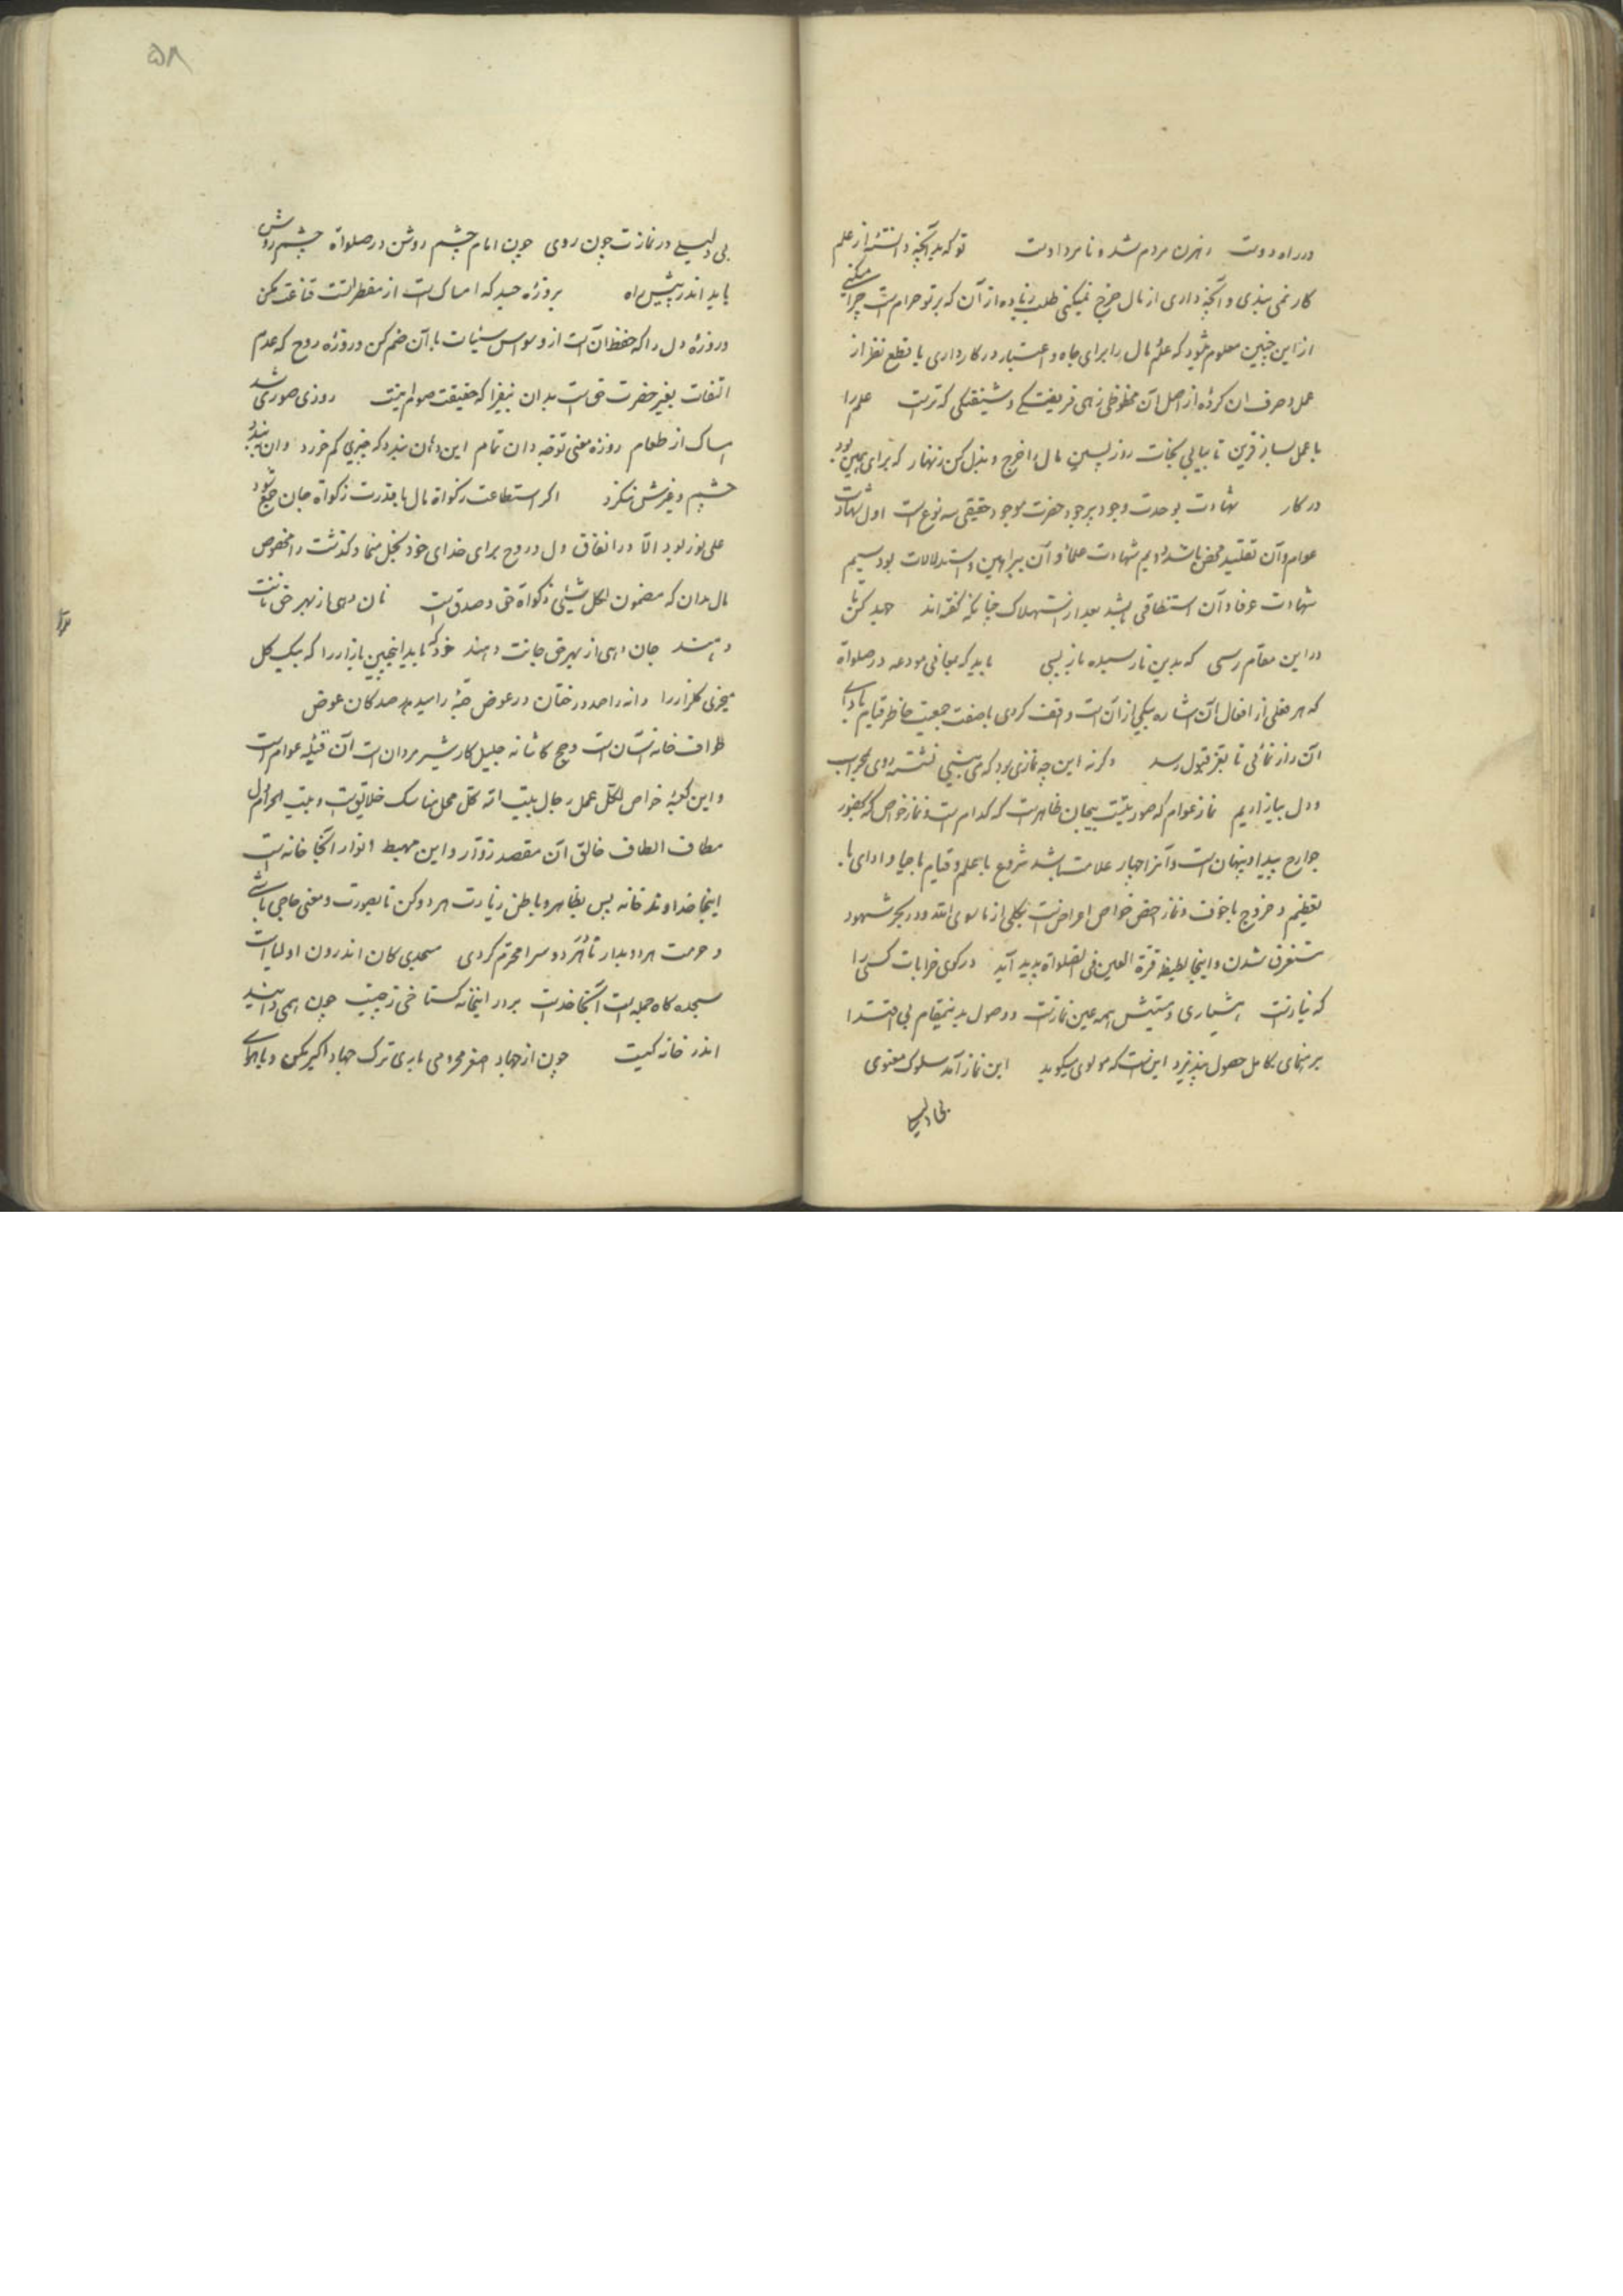 در راه دوست رهزن مردم شد و نامرد اوست تو که بدآنچه دانستهٔ از علم
کار نمی بندی و آنچه داری از مال خرج نمیکنی طلب زیاده از آن که بر تو حرام است چرا میکنی
از این چنین معلوم میشود که علم و مال را برای جاه و اعتبار در کار داری با قطع نظر از
عمل و صرف ان کردهٔ از اصل آن محظوظی زهی فریفتگی و شیفتگی که تراست علم را
با عمل ساز قرین تا بیابی نجات روز پسین مال را خرج و بذل کن زنهار که برای همین بود
در کار شهادت بوحدت وجود برجود حضرت موجود حقیقی سه نوع است اول شهادت
عوام و آن تقلید محض باشد دویم شهادت علما و آن ببراهین و استدلالات بود سیم
شهادت عرفا و آن استنطاقی باشد بعد از استهلاک چنانکه گفته‌اند جهد کن تا
در این مقام رسی که بدین نارسیده بازپسی باید که بمعانی مودعه در صلواة
که هر فعلی از افعال آن اشاره بیکی از آن است واقف گردی با صفت جمعیت خاطر قیام با دای
آن راز نمائی تا بعز قبول رسد وگرنه این چه نمازی بود که من بیتی نشسته روی بمحراب
و دل ببازاریم نماز عوام که صورتیست بیجان ظاهر است که کدام است و نماز خواص که بحضور
جوارح پیدا و پنهان است و آنرا چهار علامت باشد شروع با علم و قیام با حیا و ادای با
تعظیم و خروج با خوف و نماز اخص خواص اعراض است بکلی از ما سوی الله و در بحر شهود
مستغرق شدن و اینجا لطیفهٔ قرة العین فی الصلواة پدید آید در کوی خرابات کسی را
که نیاز است هشیاری و مستیش همه عین نماز است و وصول بدینمقام بی اقتدا
برهنمای کامل حصول نپذیرد اینست که مولوی میگوید این نماز آمد سلوک معنوی
بی دلیلی در نمازت چون روی چون امام چشم روشن در صلواة چشم روشن
باید اندر پیش راه بروزهٔ جسد که امساک است از مفطرات قناعت مکن
و روزهٔ دل را که حفظ آن است از وسواس سیئات با آن ضم کن و روزه روح که عدم
التفات بغیر حضرت حق است بدان بیفزا که حقیقت صوم اینست روزی صوری شد
امساک از طعام روزه معنی توجه دان تمام این دهان بندد که چیزی کم خورد وان ببندد
چشم و غیرش ننگرد اگر استطاعت زکواة مال با قدرت زکواة جان جمع شود
علی نور بود الا در انفاق دل و روح برای خدای خود بخل منما و گذشت را مخصوص
مال بدان که مضمون لکل شیئی زکواة حق و صدق است نان دهی از بهر حق نانت
دهند جان دهی از بهر حق جانت دهند خود که یابد اینچنین بازار را که بیک گل
میخری گلزار را دانه را صد درختان در عوض حبهٔ را سیدهد صد کان عوض
طواف خانه آسان است و حج کاشانه جلیل کار شیر مردان است آن قبیله عوام است
و این کعبهٔ خواص لکل عمل رجال بیت الله محل مناسک خلایق است و بیت الحرام دل
مطاف الطاف خالق آن مقصد زوار و این مهبط انوار آنجا خانه است
اینجا خداوند خانه پس بظاهر و باطن زیارت هر دو کن تا بصورت و معنی حاجی باشی
و حرمت هر دو بدار تا در هر دو سرا محترم گردی مسجدی کان اندرون اولیا است
سجده گاه جمله است آنجا خداست بر در اینخانه گستاخی ز چیست چون همی دانید
اندر خانه کیست چون از جهاد اصغر محرومی باری ترک جهاد اکبر مکن و با هوای